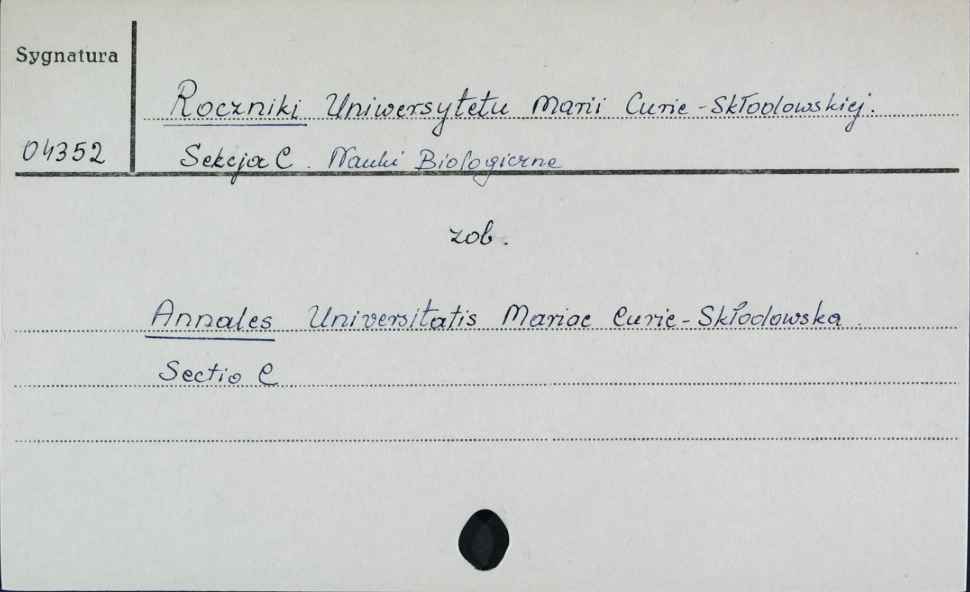 Sygnatura
Roczniki Uniwersytetu Marii Curie-Skłodowskiej.
04352
Sekcja C. Nauki Biologiczne
zob.
Annales Universitatis Mariae Curie-Skłodowska.
Sectio C